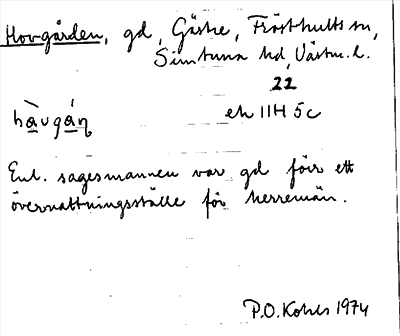 Hovgården, gd, Gäske, Frösthults sn,
Simtuna hd, Västm. l.
22
hàvgáṇ
ek 11H 5c
Enl. sagesmannen var gd förr ett
övernattningsställe för herremän.
P.O. Kohls 1974